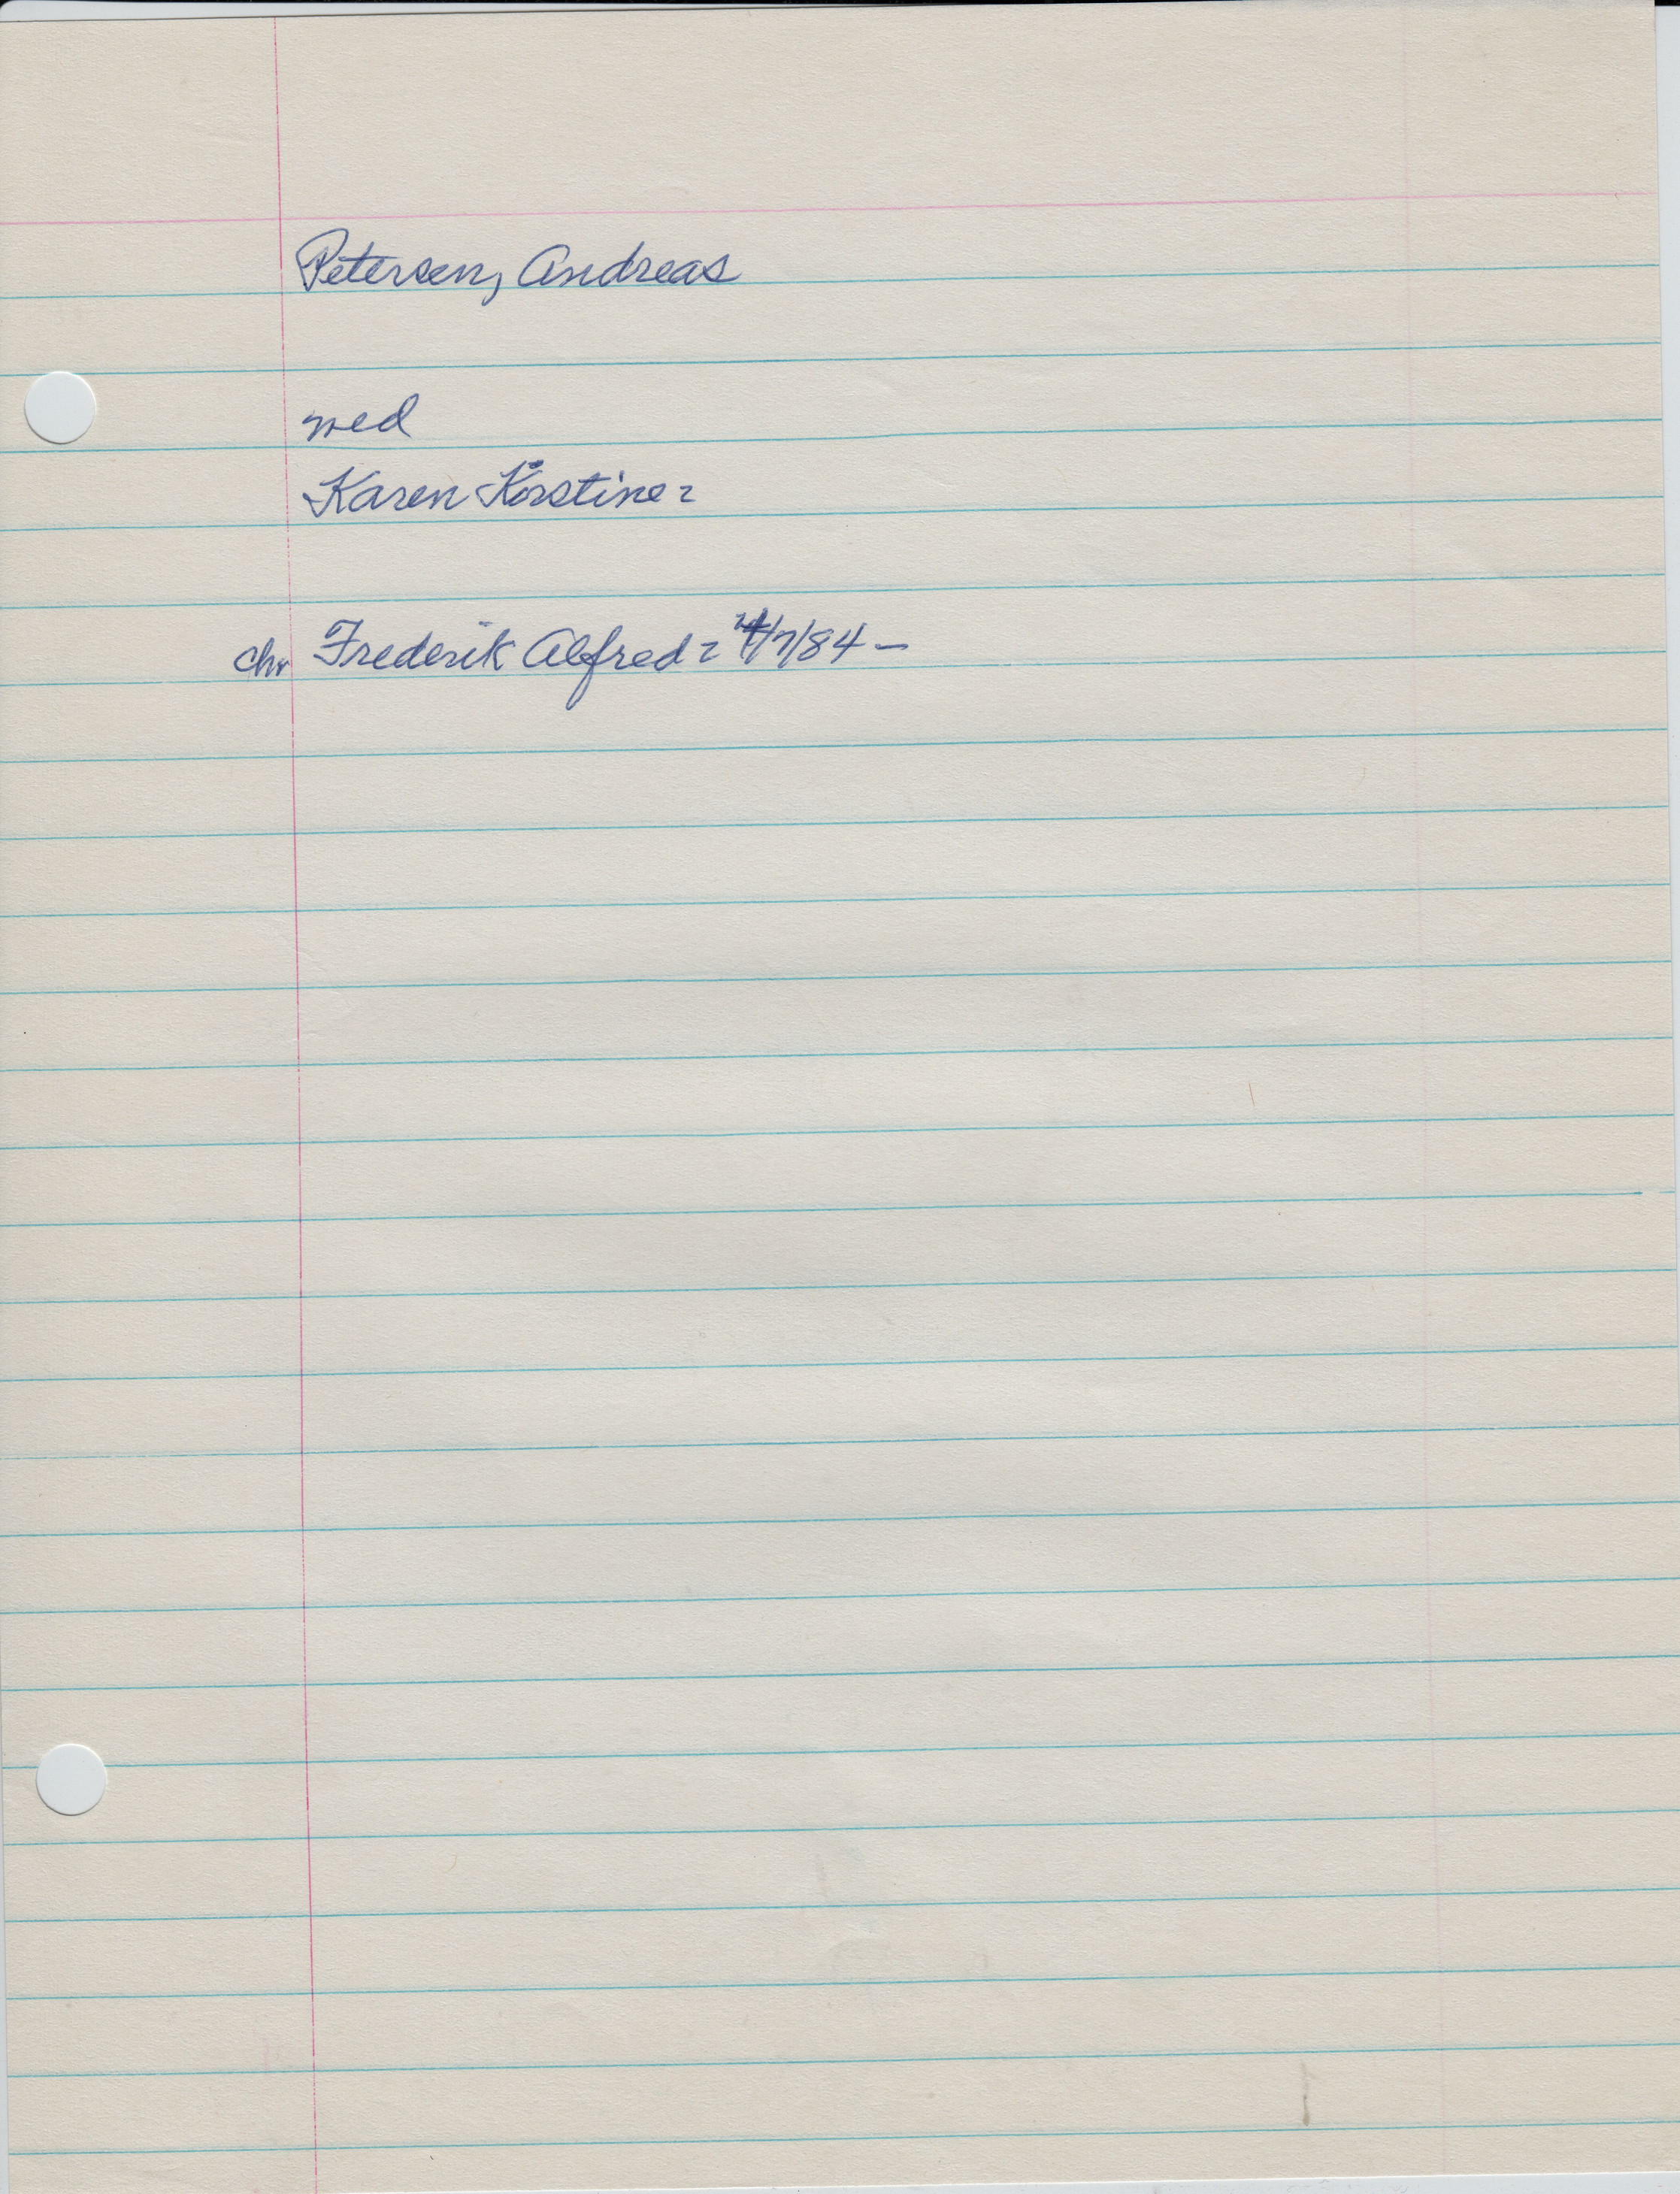 Petersen, Andreas
med
Karen Kirstine?
chr Frederik Alfred? /7/84 –